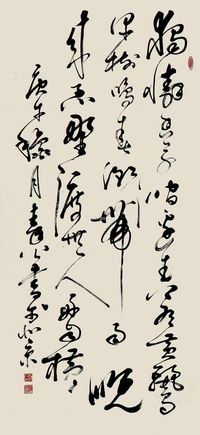 獨憐幽草澗邊生上有黃鸝
深樹鳴春潮帶雨晚
來急野渡無人舟自橫
庚午穐月書於北京